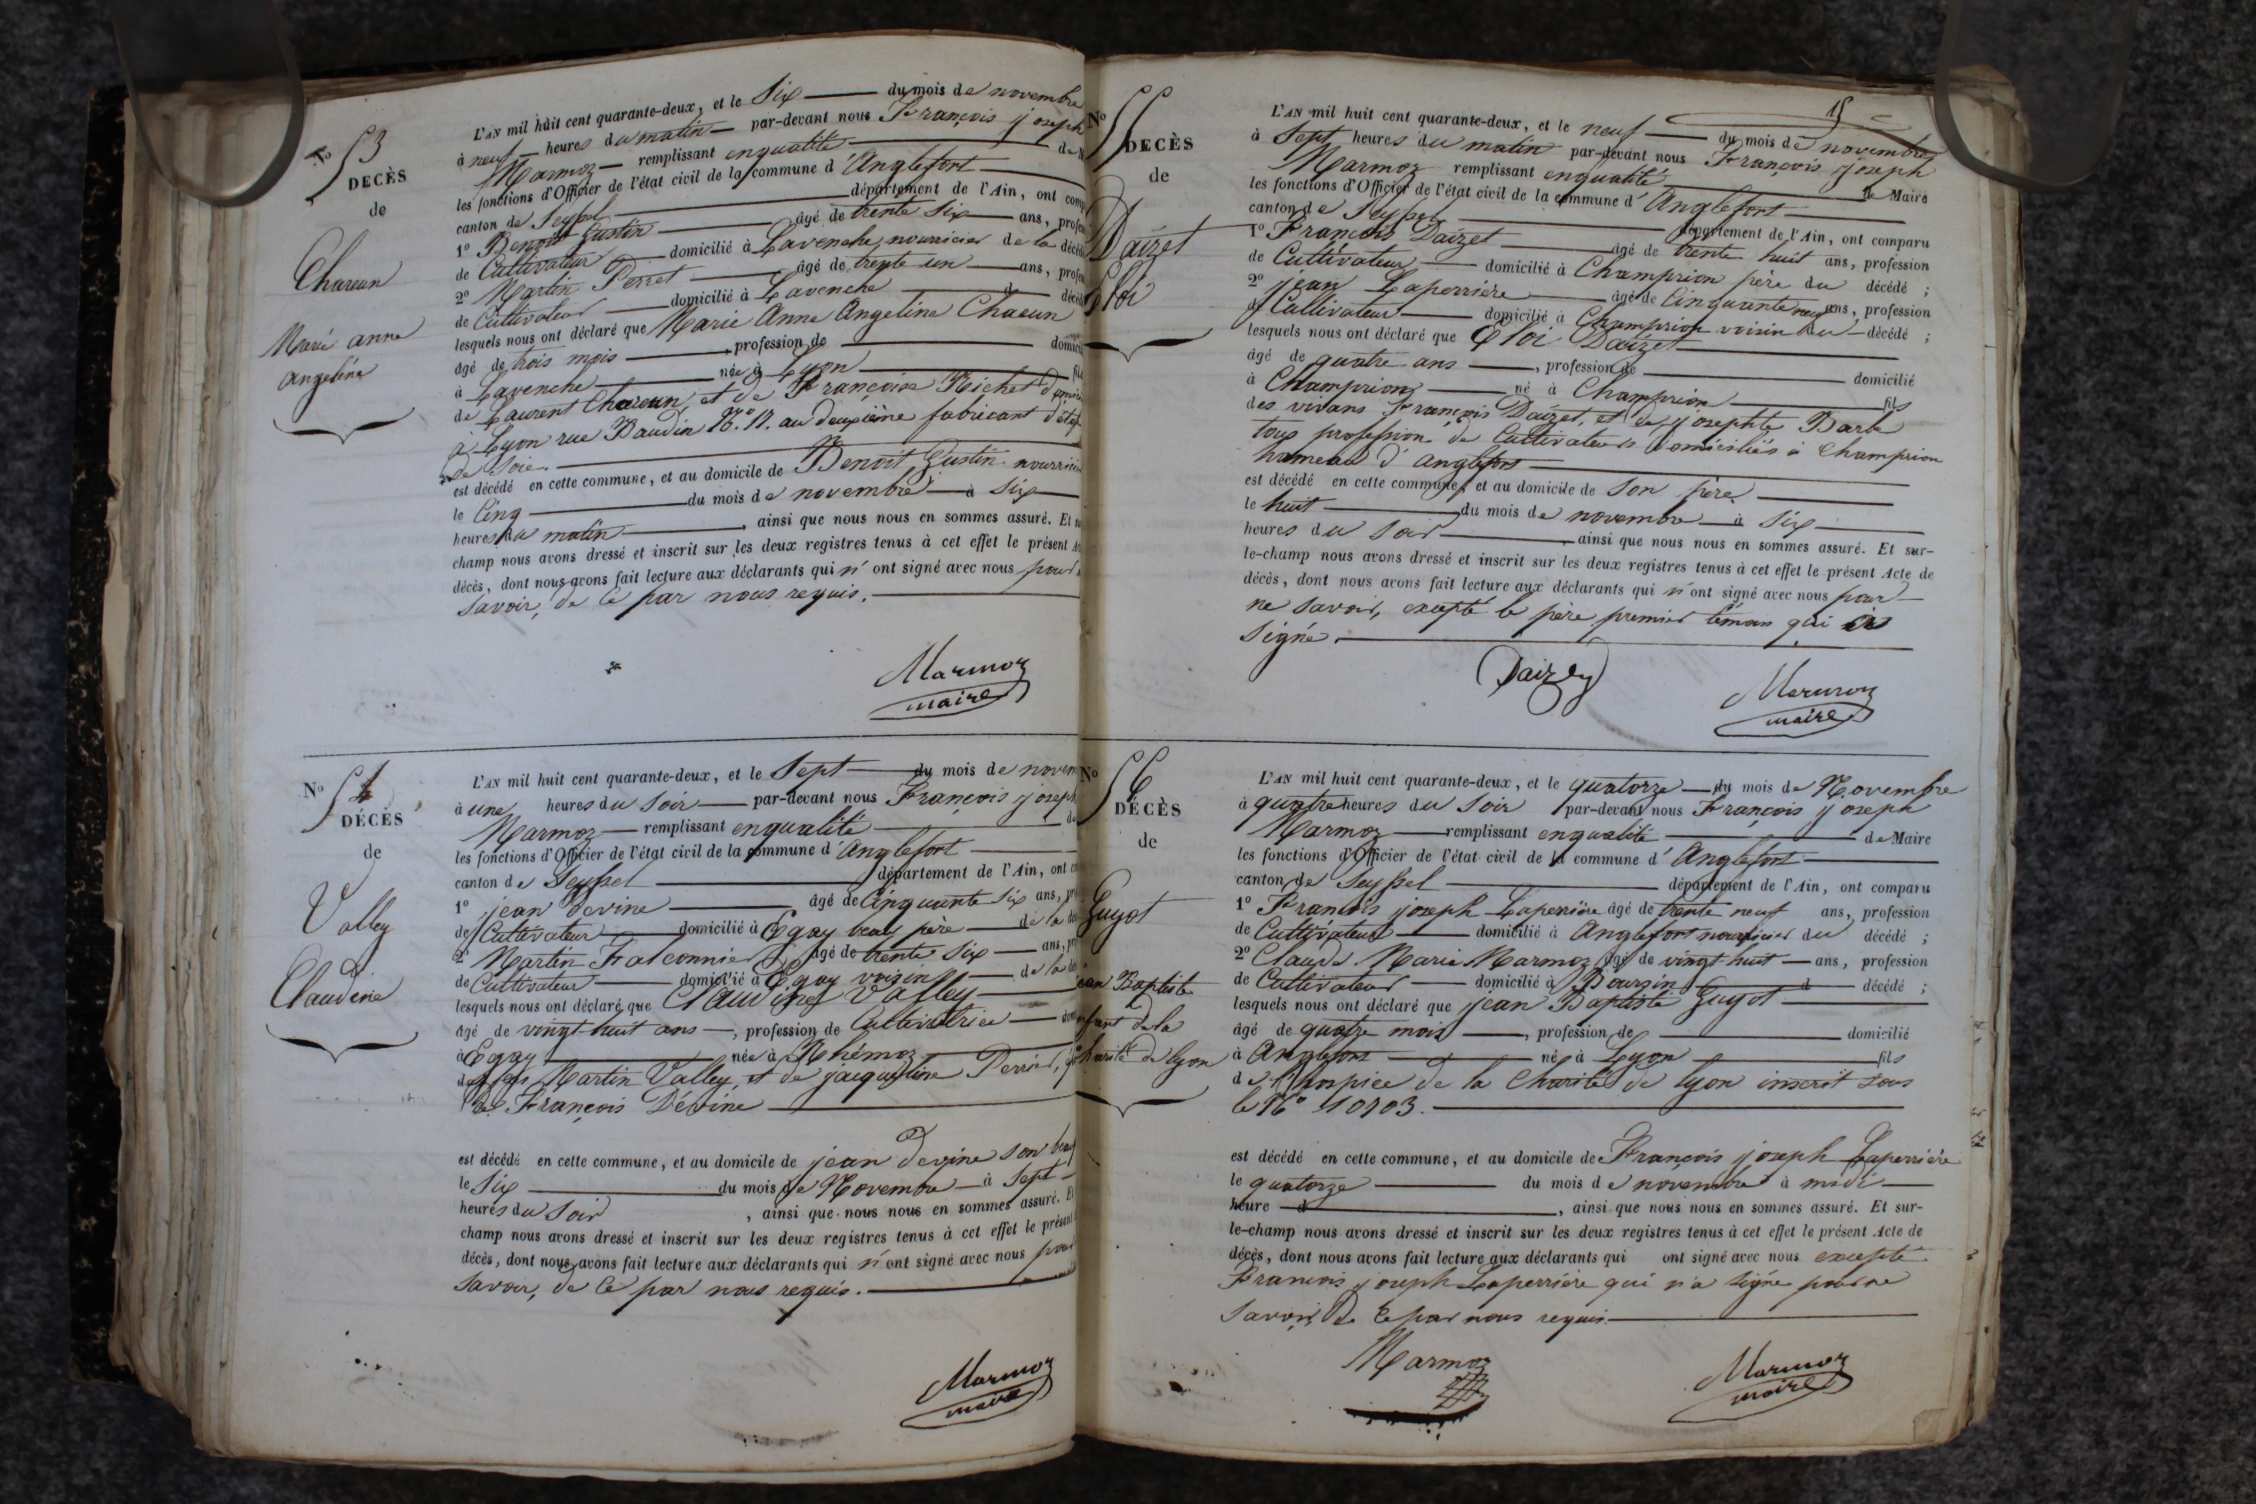 No 53
DÉCÈS
de
Chareun
Marie anne
angeline
L'AN mil huit cent quarante-deux, et le Six du mois de novembre
à neuf heures du matin par-devant nous François joseph
Marmoz remplissant enqualité de
les fonctions d'Officier de l'état civil de la commune d'Anglefort
canton de Seyssel département de l'Ain, ont comp
1o Benoit Gustin âgé de trente six ans, profes
de Cultivateur domicilié à Lavenche, nourricier de la décéd
2o Martin Perret âgé de trente un ans, profes
de Cultivateur domicilié à Lavenche d décéd
lesquels nous ont déclaré que Marie Anne Angeline Chareun
âgé de trois mois, profession de domicil
à Lavenche née à Lyon fil
de Laurent Chareun, et de Françoise Richet domici
à Lyon rue Baudin No. 11. au deuxième fabricant d'étof
de Soie.
est décédé en cette commune, et au domicile de Benoit Gustin nourricier
le Cinq du mois de novembre à Six
heures du matin, ainsi que nous nous en sommes assuré. Et su
champ nous avons dressé et inscrit sur les deux registres tenus à cet effet le présent A
décès, dont nous avons fait lecture aux déclarants qui n'ont signé avec nous pour
savoir, de ce par nous requis.
Marmoz
maire
No 54
DÉCÈS
de
Valley
Claudine
L'AN mil huit cent quarante-deux, et le Sept du mois de novem
à une heures du Soir par-devant nous François joseph
Marmoz remplissant enqualité de
les fonctions d'Officier de l'état civil de la commune d'Anglefort
canton de Seyssel département de l'Ain, ont co
1o jean Devine âgé de Cinquante Six ans, pro
de Cultivateur domicilié à Egay beau père de la dé
2o Martin Falconnier âgé de trente Six ans, pr
de Cultivateur domicilié à Egay voisin de la dé
lesquels nous ont déclaré que Claudine Valley
âgé de vingt huit ans, profession de Cultivatrice dom
à Egay née à Rhémoz
de Martin Valley, et de jacqueline Perrier,
de François Dévine
est décédé en cette commune, et au domicile de jean Devine son beau
le Six du mois de Novembre à Sept
heures du Soir, ainsi que nous nous en sommes assuré. E
champ nous avons dressé et inscrit sur les deux registres tenus à cet effet le présent
décès, dont nous avons fait lecture aux déclarants qui n'ont signé avec nous pour
savoir, de ce par nous requis.
Marmoz
maire
15
No 55
DÉCÈS
de
Daizet
Eloi
L'AN mil huit cent quarante-deux, et le neuf du mois de novembre
à Sept heures du matin par-devant nous François joseph
Marmoz remplissant enqualité de Maire
les fonctions d'Officier de l'état civil de la commune d'Anglefort
canton de Seyssel département de l'Ain, ont comparu
1o François Daizet âgé de trente huit ans, profession
de Cultivateur domicilié à Champrion père du décédé ;
2o jean Laperrière âgé de Cinquante neuf ans, profession
d Cultivateur domicilié à Champrion voisin du décédé ;
lesquels nous ont déclaré que Eloi Daizet
âgé de quatre ans, profession de domicilié
à Champrion né à Champrion fils
des vivans François Daizet, et de josephte Barbe
tous profession de Cultivateurs domiciliés à Champrion
hameau d'anglefort
est décédé en cette commune, et au domicile de Son père
le huit du mois de novembre à Six
heures du Soir, ainsi que nous nous en sommes assuré. Et sur-
le-champ nous avons dressé et inscrit sur les deux registres tenus à cet effet le présent Acte de
décès, dont nous avons fait lecture aux déclarants qui n'ont signé avec nous pour
ne savoir, excepté le père premier témoin qui a
Signé.
Daizey
Marmoz
maire
No 56
DÉCÈS
de
Guyot
jean Baptiste
enfant de la
charité de lyon
L'AN mil huit cent quarante-deux, et le quatorze du mois de Novembre
à quatre heures du Soir par-devant nous François joseph
Marmoz remplissant enqualité de Maire
les fonctions d'Officier de l'état civil de la commune d'Anglefort
canton de Seyssel département de l'Ain, ont comparu
1o François joseph Laperrière âgé de trente neuf ans, profession
de Cultivateur domicilié à Anglefort nourricier du décédé ;
2o Claude Marie Marmoz âgé de vingt huit ans, profession
de Cultivateur domicilié à Boursin d décédé ;
lesquels nous ont déclaré que jean Baptiste Guyot
âgé de quatre mois, profession de domicilié
à Anglefort né à Lyon fils
de l'hospice de la Charité de lyon inscrit sous
le No 10903.
est décédé en cette commune, et au domicile de François joseph Laperrière
le quatorze du mois de novembre à midi
heure d, ainsi que nous nous en sommes assuré. Et sur-
le-champ nous avons dressé et inscrit sur les deux registres tenus à cet effet le présent Acte de
décès, dont nous avons fait lecture aux déclarants qui ont signé avec nous excepté
François joseph Laperrière qui n'a Signé pour ne
savoir, De ce par nous requis
Marmoz
Marmoz
maire